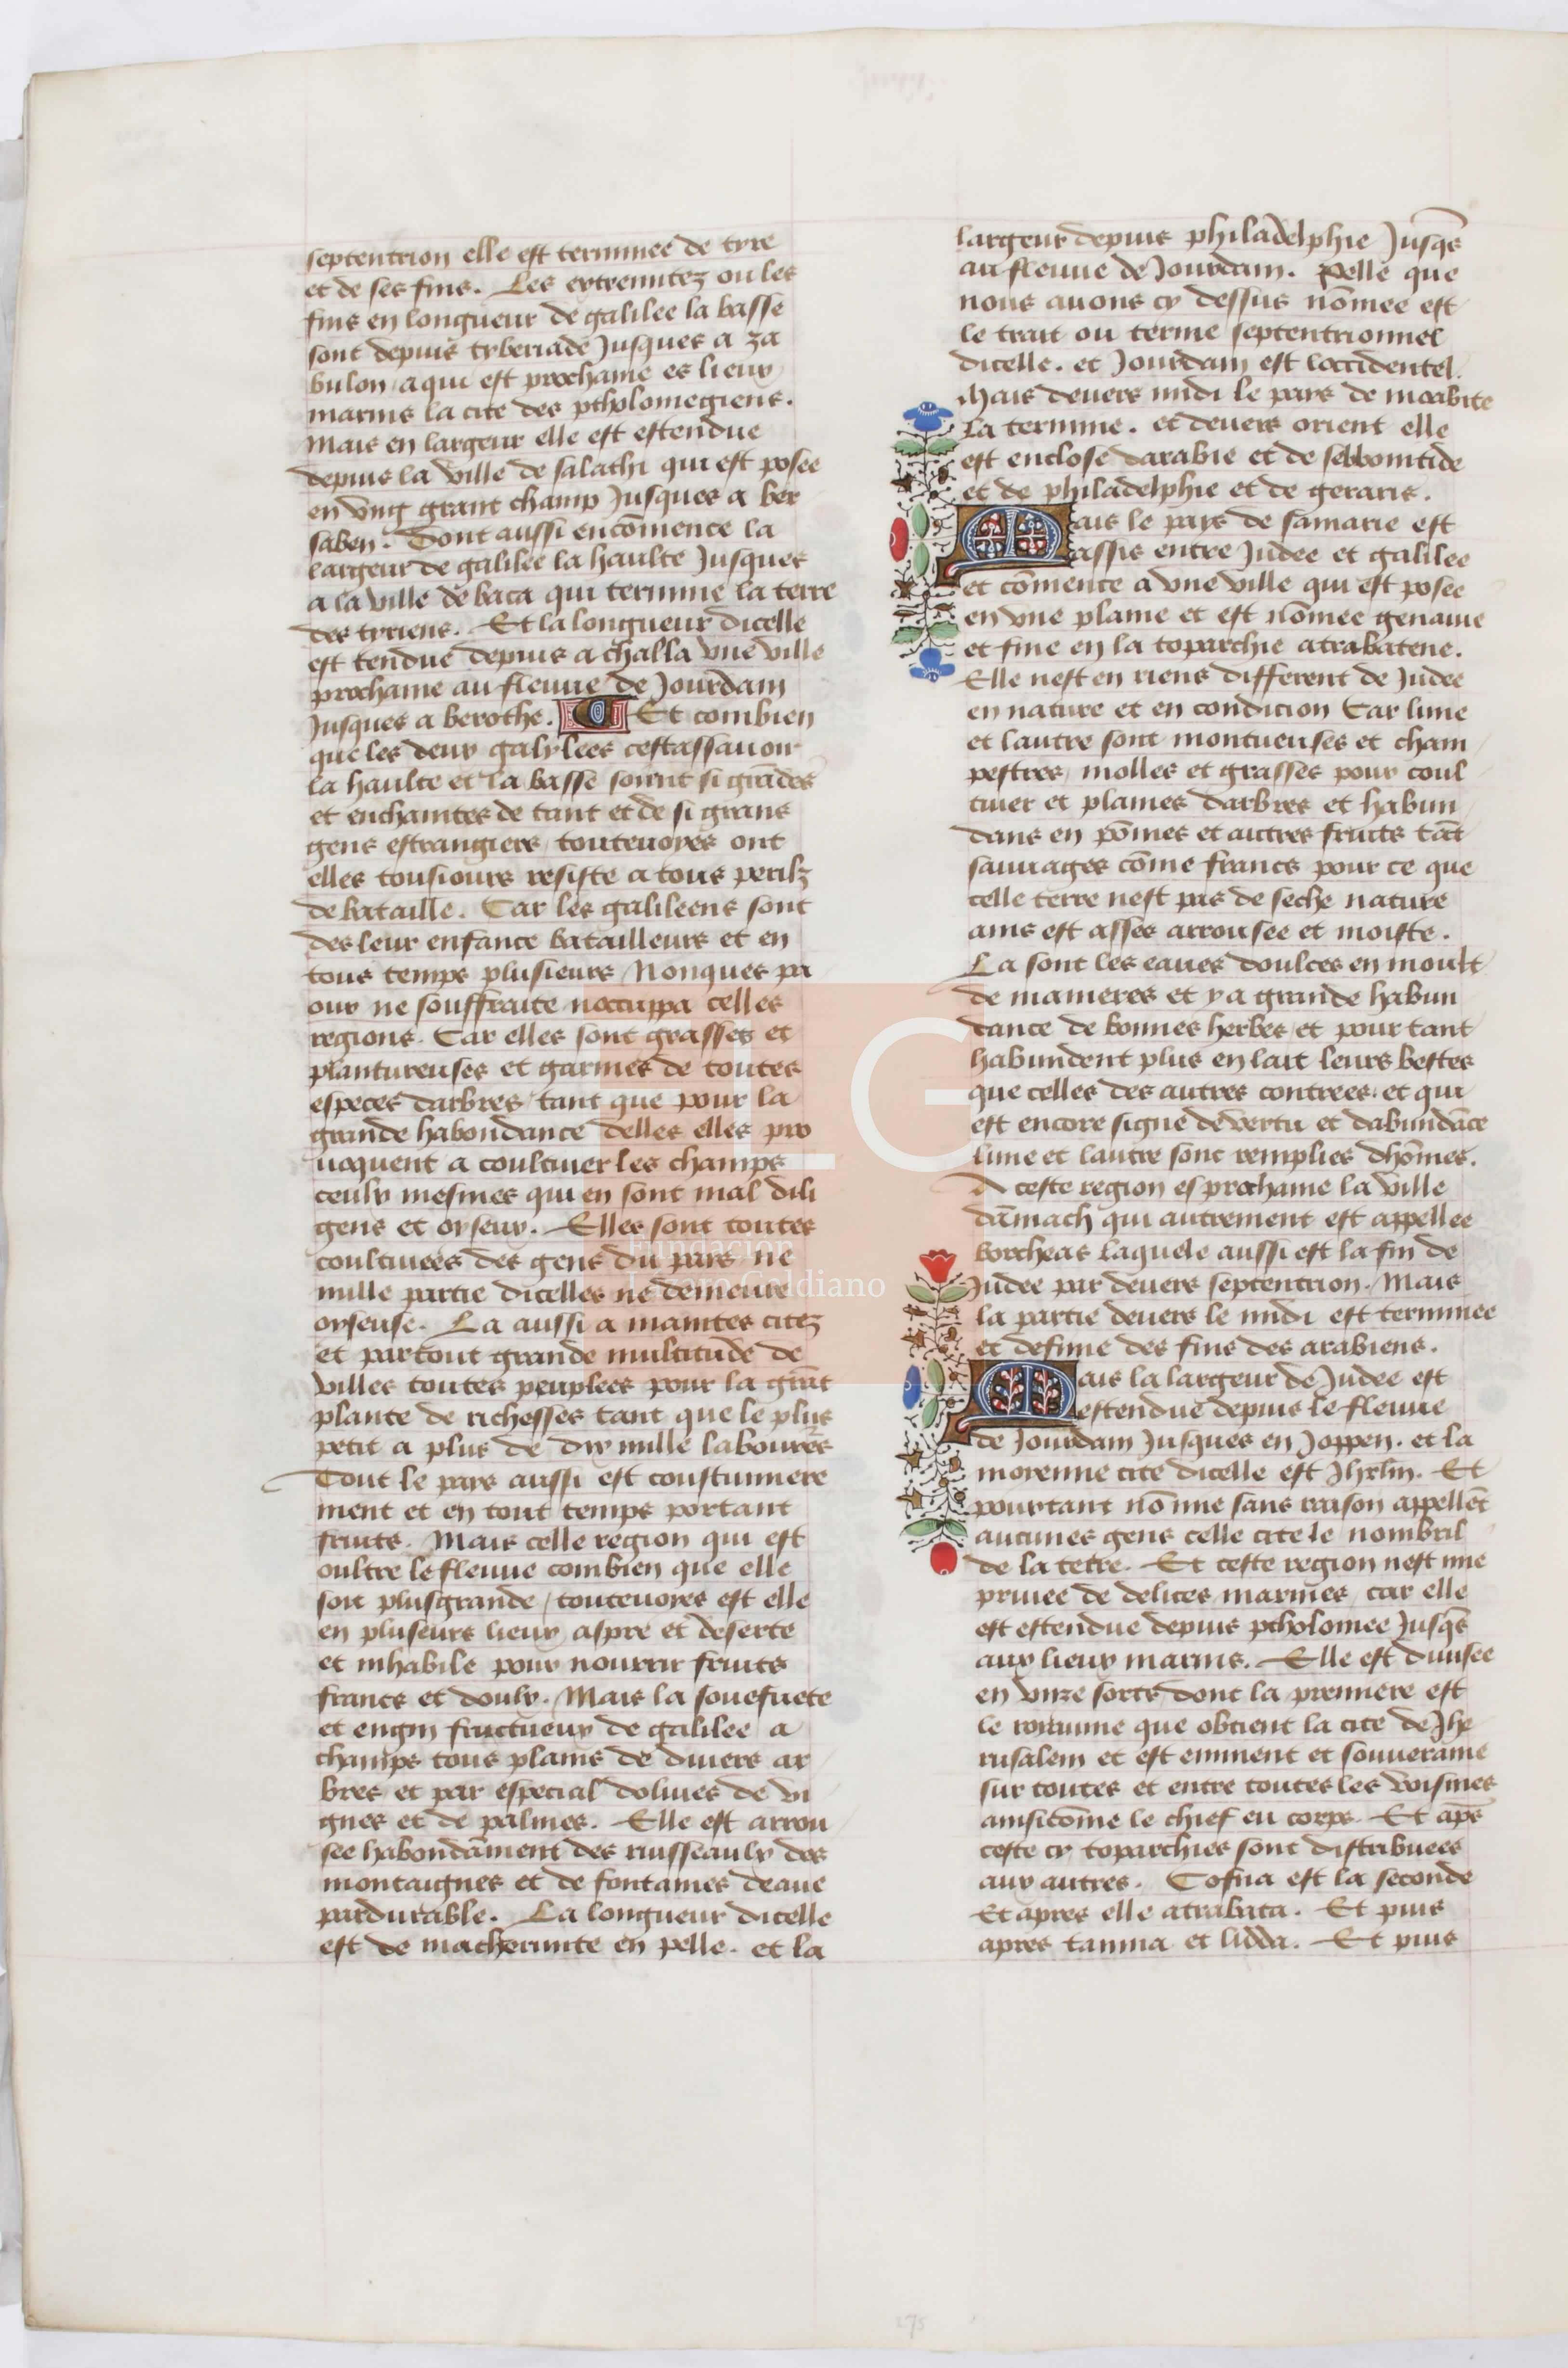 septentrion elle est terminee de tyre
et de ses fins. Les extremitez ou les
fins en longueur de galilee la basse
sont depuis tyberiade Jusques a za
bulon a qui est prochaine es lieux
marins la cite des ptholomegiens.
Mais en largeur elle est estendue
depuis la ville de salachi qui est posee
en vng grant champ Jusques a ber
saben. Dont aussi encōmence la
largeur de galilee la haulte Jusques
a la ville de baca qui termine la terre
des tyriens. Et la longueur dicelle
est tendue depuis a challa vne ville
prochaine au fleuue de Jourdain
Jusques a berothe. Et combien
que les deux galylees cestassauoir
la haulte et la basse soient si grādes
et enchaintes de tant et de si grans
gens estrangiers touteuoyes ont
elles tousiours resiste a tous perilz
de bataille. Car les galileens sont
des leur enfance batailleurs et en
tous temps plusieurs Nonques pa
our ne souffraite noccuppa celles
regions. Car elles sont grasses et
plantureuses et garnies de toutes
especes darbres tant que pour la
grande habondance delles elles pro
uoquent a coultiuer les champs
ceulx mesmes qui en sont mal dili
gens et oyseux. Elles sont toutes
coultiuees des gens du pays ne
nulle partie dicelles ne demeure
oyseuse. La aussi a maintes citez
et partout grande multitude de
villes toutes peuplees pour la grāt
plante de richesses tant que le plus
petit a plus de dix mille laboures
Tout le pays aussi est coustumiere
ment et en tout temps portant
fruits. Mais celle region qui est
oultre le fleuue combien que elle
soit plusgrande / touteuoyes est elle
en pluseurs lieux aspre et deserte
et inhabile pour nourrir fruits
francs et doulx. Mais la souefuete
et engin fructueux de galilee a
champs tous plains de diuers ar
bres et par especial doliues de vi
gnes et de palmes. Elle est arrou
see habondāment des ruisseaulx des
montaignes et de fontaines deaue
pardurable. La longueur dicelle
est de macherunte en pelle. et la
largeur depuis philadelphie Jusqs̄
au fleuue de Jourdain. Pelle que
nous auons cy dessus nōmee est
le trait ou terme septentrionnel
dicelle. et Jourdain est loccidentel.
Mais deuers midi le pays de moabite
La termine. et deuers orient elle
est enclose darabie et de sebbonitide
et de philadelphie et de geraris.
Mais le pays de samarie est
assis entre Judee et galilee
et cōmence a vne ville qui est posee
en vne plaine et est nōmee genaiue
et fine en la toparchie atrabatene.
Elle nest en riens different de Judee
en nature et en condicion Car lune
et lautre sont montueuses et cham
pestres / molles et grasses pour coul
tiuer et plaines darbres et habun
dans en pōmes et autres fruits tāt
sauuages cōme francs pour ce que
celle terre nest pas de seche nature
ains est asses arrousee et moiste.
La sont les eaues doulces en moult
de manieres et y a grande habun
dance de bonnes herbes et pour tant
habundent plus en lait leurs bestes
que celles des autres contrees. et qui
est encore signe de vertu et dabundāce
lune et lautre sont remplies dhōmes.
A ceste region es prochaine la ville
dāmach qui autrement est appellee
borcheas laquele aussi est la fin de
Judee par deuers septentrion. Mais
la partie deuers le midi est terminee
et definie des fins des arabiens.
Mais la largeur de Judee est
estendue depuis le fleuue
de Jourdain Jusques en Joppen. et la
moyenne cite dicelle est Jhrlm. Et
pourtant nō mie sans raison appellēt
aucunes gens celle cite le nombril
de la terre. Et ceste region nest mie
priuee de delices marines car elle
est estendue depuis ptholomee Jusqs̄
aux lieux marins. Elle est diuisee
en vnze sorts dont la premiere est
le royaume que obtient la cite de Jhe
rusalem et est eminent et souueraine
sur toutes et entre toutes les voisines
ainsicōme le chief eu corps. Et aps̄
ceste cy toparchies sont distribuees
aux autres. Cofna est la seconde
Et apres elle atrabata. Et puis
apres tamna et lidda. Et puis
FLG
Fundación
Lázaro Galdiano